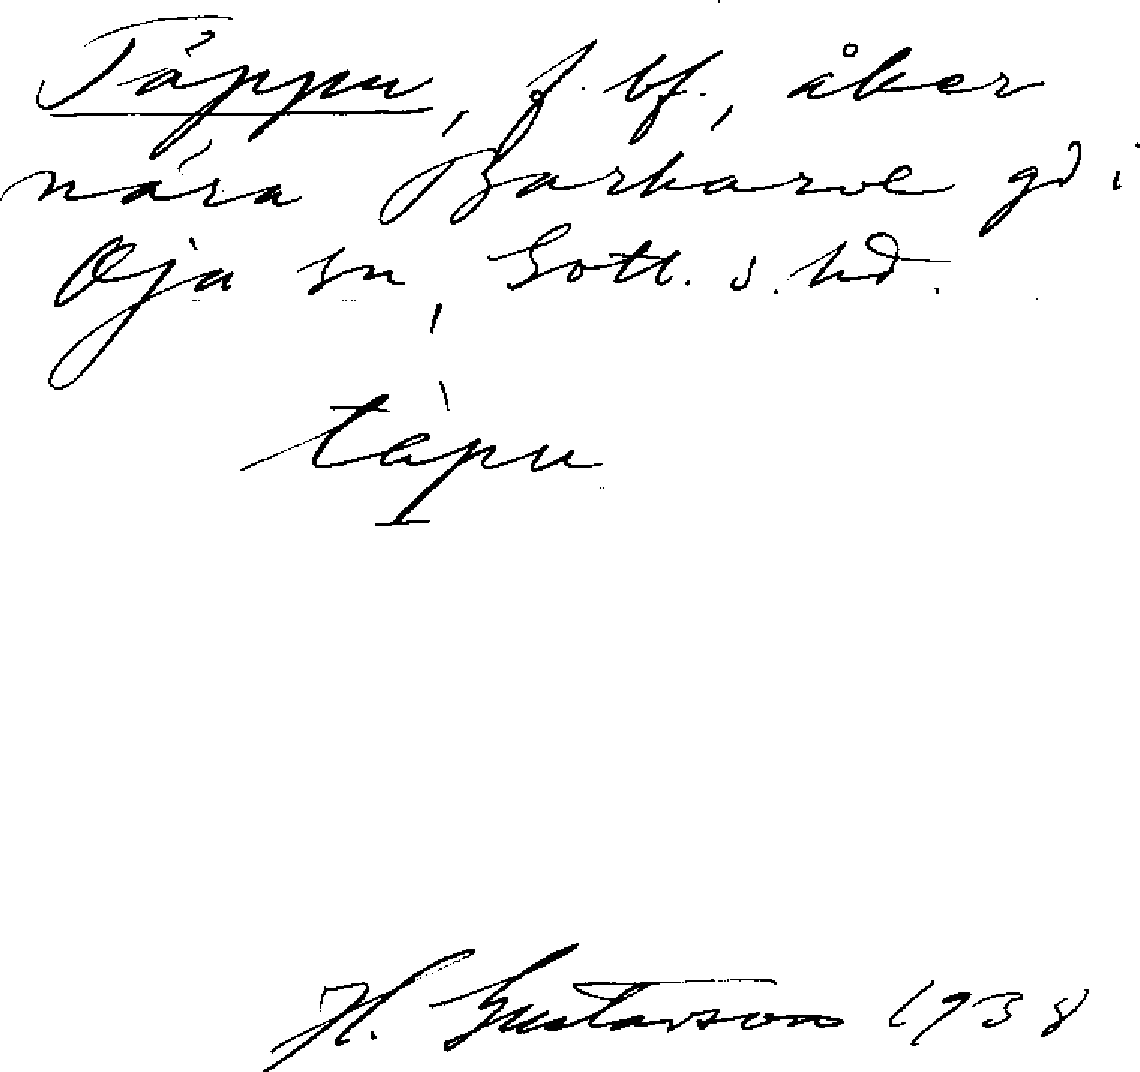 Täppu, f. bf., åker
nära Barkarve gd i
Öja sn, Gotl. s. hd.
täpu
H. Gustavson 1938